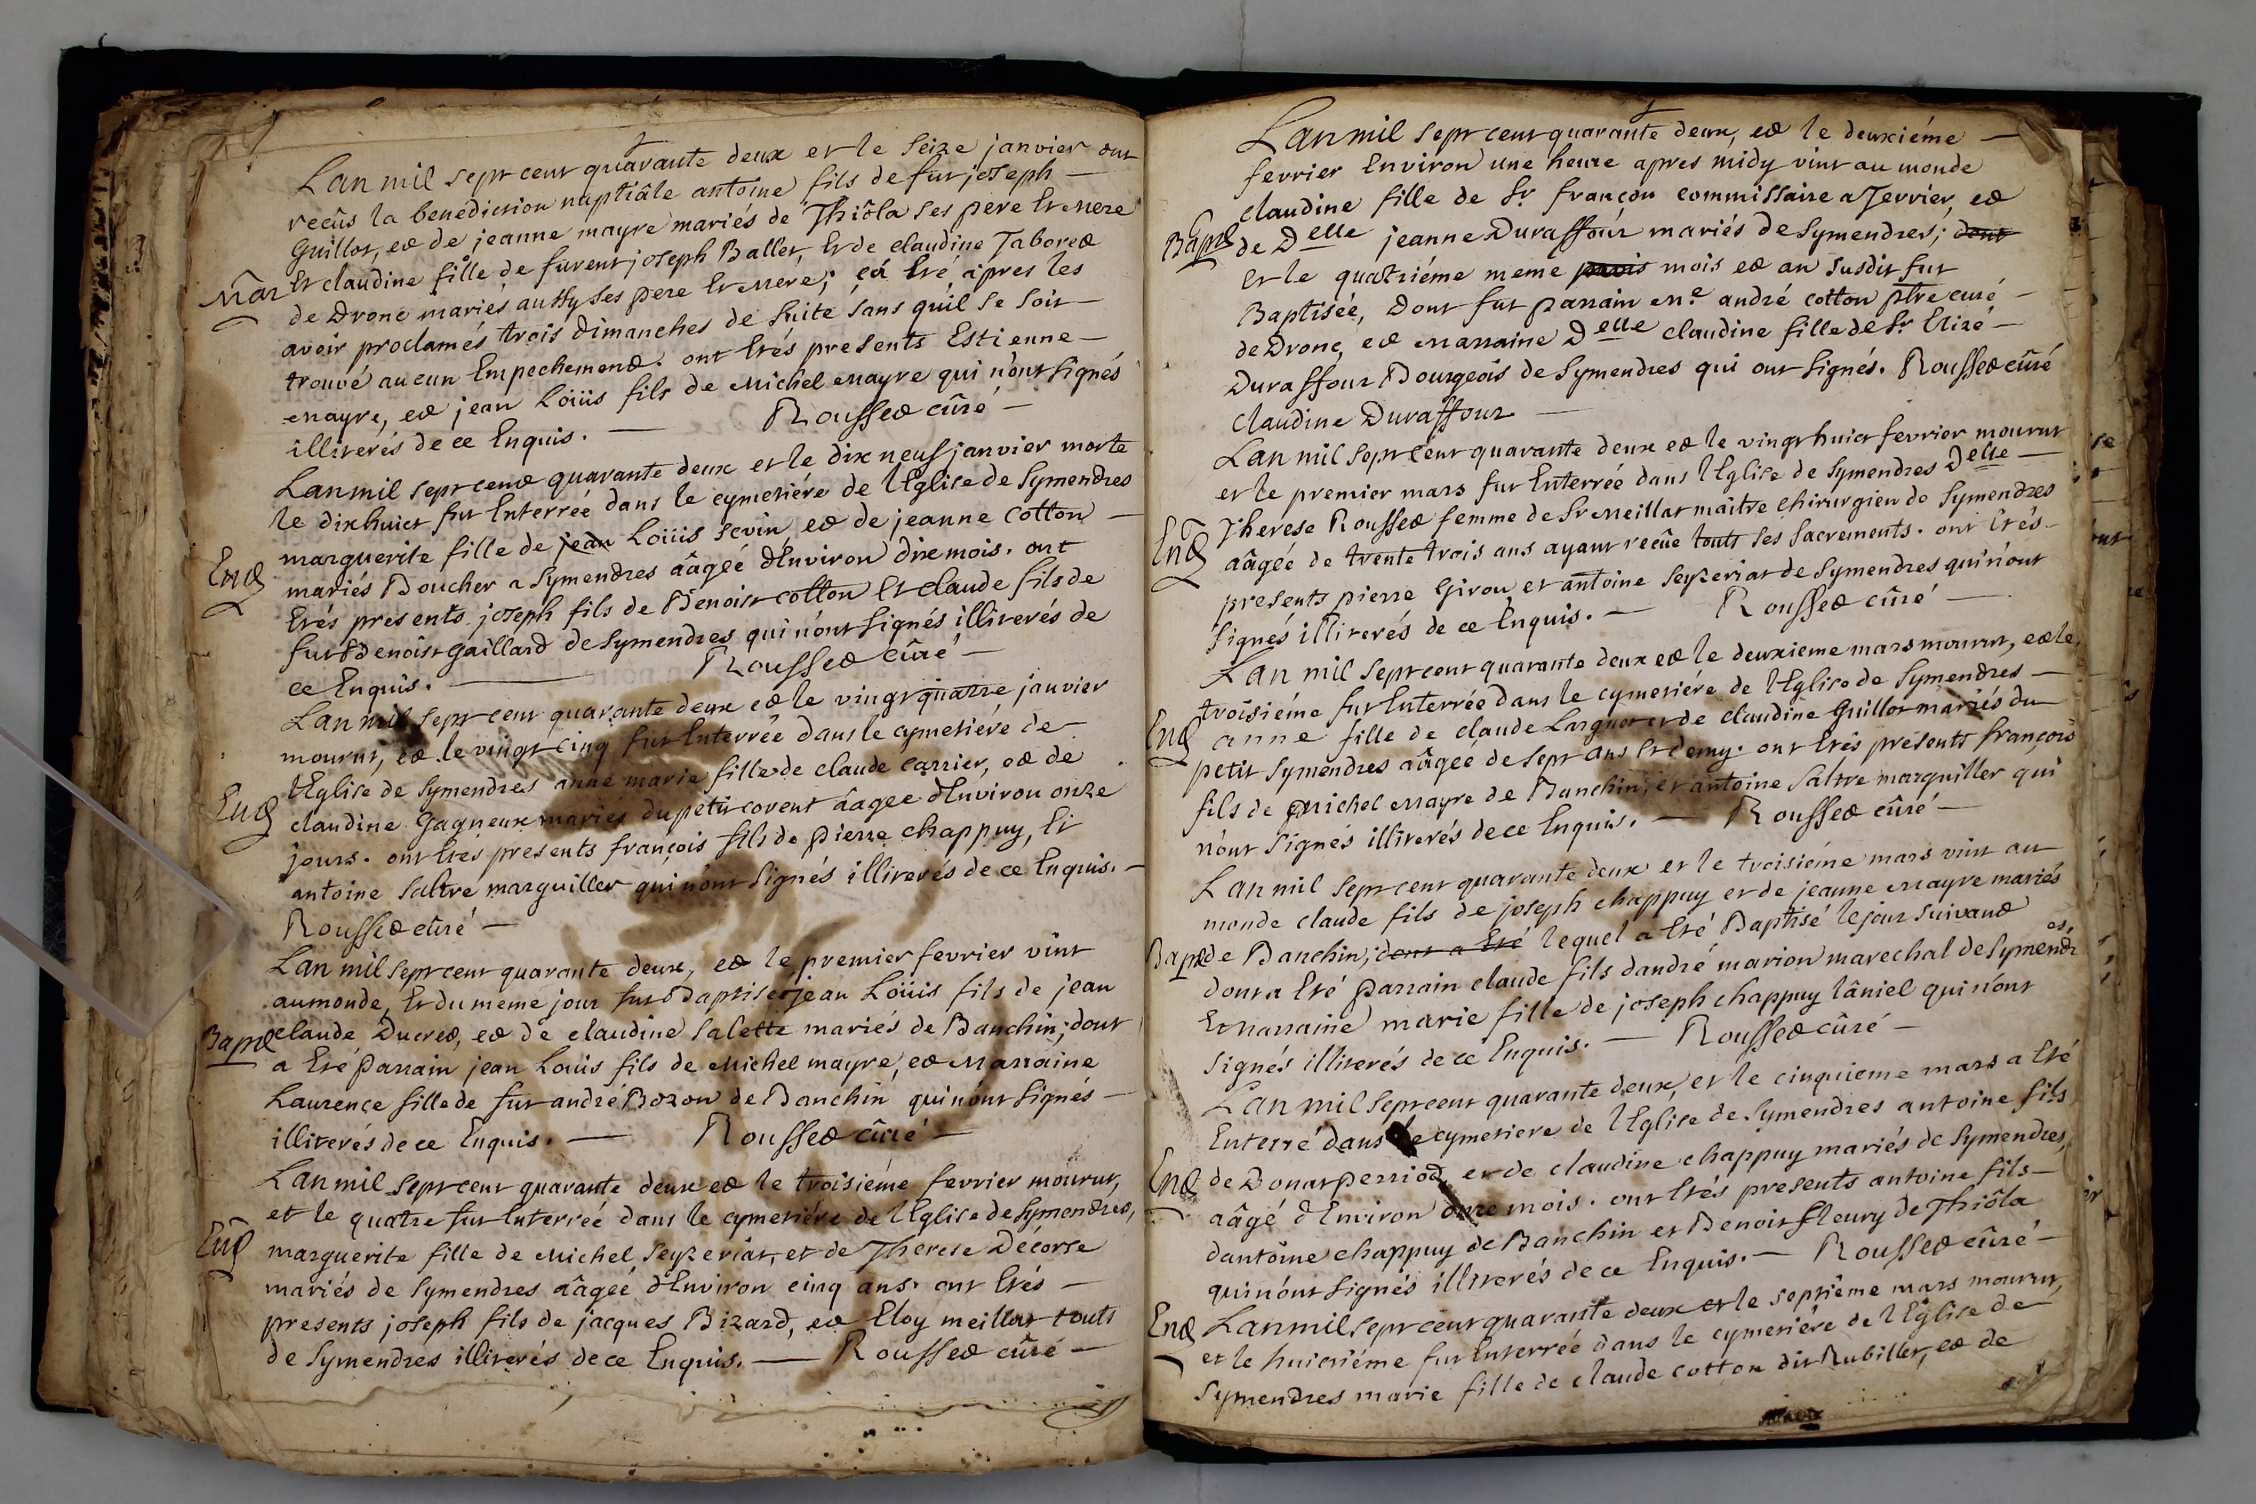 Lan mil sept cent quarante deux et le seize janvier ont
recûs la benédiction nuptiâle antoine fils de fut joseph —
Guillot, et de jeanne mayre mariés de Thiôla ses pere Et mere
Mar Et claudine fille de furent joseph Ballet, Et de claudine Taboret
de Drone mariés aussy ses pere Et mere; çà Eté apres les
avoir proclamés trois dimanches de suite sans quil se soit —
trouvé aucun Empechement. ont Etés presents Estienne —
mayre, et jean Loüis fils de Michel mayre qui nont signés
illiterés de ce Enquis. — Rousset cûré —
Lan mil sept cent quarante deux et le dix neuf janvier morte
le dixhuict fut Enterreé dans le cymetiére de lEglise de Symendres
marguerite fille de jean Loüis sevin, et de jeanne cotton —
Ent mariés Boucher a Symendres aâgéé dEnviron dix mois. ont
Etés presents joseph fils de Benoist cotton Et claude fils de
fut Benoist gaillard de Symendres qui nont signés illiterés de
ce Enquis. — Rousset cûré —
Lan mil sept cent quarante deux et le vingt quatre janvier
mourut, et le vingt cinq fut Enterreé dans le cymetiére de
lEglise de Symendres anne marie fille de claude carrier, et de
Ent claudine Gagneux mariés du petit corent âagee dEnviron onze
jours. ont Etés presents françois fils de pierre chappuy, Et
antoine saltre marguiller qui nont signés illiterés de ce Enquis. —
Rousset cûré —
Lan mil sept cent quarante deux, et le premier fevrier vint
au monde, Et du meme jour fut Baptisé jean Loüis fils de jean
Bapt claude Ducret, et de claudine salette mariés de Banchin; dont
a Eté parrain jean Louis fils de Michel mayre, et Marraine
Laurence fille de fut andré Bozon de Banchin qui nont signés —
illiterés de ce Enquis. — Rousset cûré —
Lan mil sept cent quarante deux et le troisiéme fevrier mourut,
et le quatre fut Enterreé dans le cymetiére de lEglise de Symendres,
Ent marguerite fille de Michel seyzeriat, et de Therese Décorse
mariés de Symendres aâgeé dEnviron cinq ans. ont Etés —
presents joseph fils de jacques Bizard, et Eloy meillat touts
de Symendres illiterés de ce Enquis. — Rousset cûré —
Lan mil sept cent quarante deux, et le deuxiéme —
fevrier Environ une heure apres midy vint au monde
claudine fille de Sr. françon commissaire a Terrier, et
Bapt de Delle jeanne Duraffour mariés de Symendres; dont
et le quatriéme meme mois et an susdit fut
Baptisée, Dont fut parrain me. andré cotton ptre curé —
de Drone, et marraine Delle claudine fille de Sr. Elizé —
Duraffour Bourgeois de Symendres qui ont signés. Rousset cûré
Claudine Duraffour —
Lan mil sept cent quarante deux et le vingt huict fevrier mourut
et le premier mars fut Enterreé dans lEglise de Symendres Delle —
Therese Rousset femme de Sr Meillat maitre chirurgien de Symendres
Ent aâgée de trente trois ans ayant recûe touts ses sacrements. ont Etés —
presents pierre Girou et antoine seyzeriat de Symendres qui nont
signés illiterés de ce Enquis. — Rousset cûré —
Lan mil sept cent quarante deux et le deuxieme mars mourut, et le
troisiéme fut Enterrée dans le cymetiére de lEglise de Symendres —
Ent anne fille de claude et de claudine Guillot mariés du
petit Symendres aâgeé de sept ans Et demy. ont Etés présents françois
fils de Michel mayre de Banchin, et antoine saltre marguiller qui
nont signés illiterés de ce Enquis. — Rousset cûré —
Lan mil sept cent quarante deux et le troisiéme mars vint au
monde claude fils de joseph chappuy et de jeanne Mayre mariés
Bapt de Banchin; dont a Eté lequel a Eté Baptisé le jour suivant
dont a Eté parrain claude fils dandré marion marechal de Symendres
Et marraine marie fille de joseph chappuy lâniel qui nont
signés illiterés de ce Enquis. — Rousset cûré —
Lan mil sept cent quarante deux, et le cinquieme mars a Eté
Enterré dans le cymetiere de lEglise de Symendres antoine fils
Ent de Donat perriod, et de claudine chappuy mariés de Symendres,
aâgé dEnviron onze mois. ont Etés presents antoine fils —
dantoine chappuy de Banchin et Benoit fleury de Thiôla
qui nont signés illiterés de ce Enquis. — Rousset cûré —
Ent Lan mil sept cent quarante deux et le septiéme mars mourut,
et le huictiéme fut Enterrée dans le cymetiére de lEglise de
Symendres marie fille de claude cotton dit Rubillet, et de